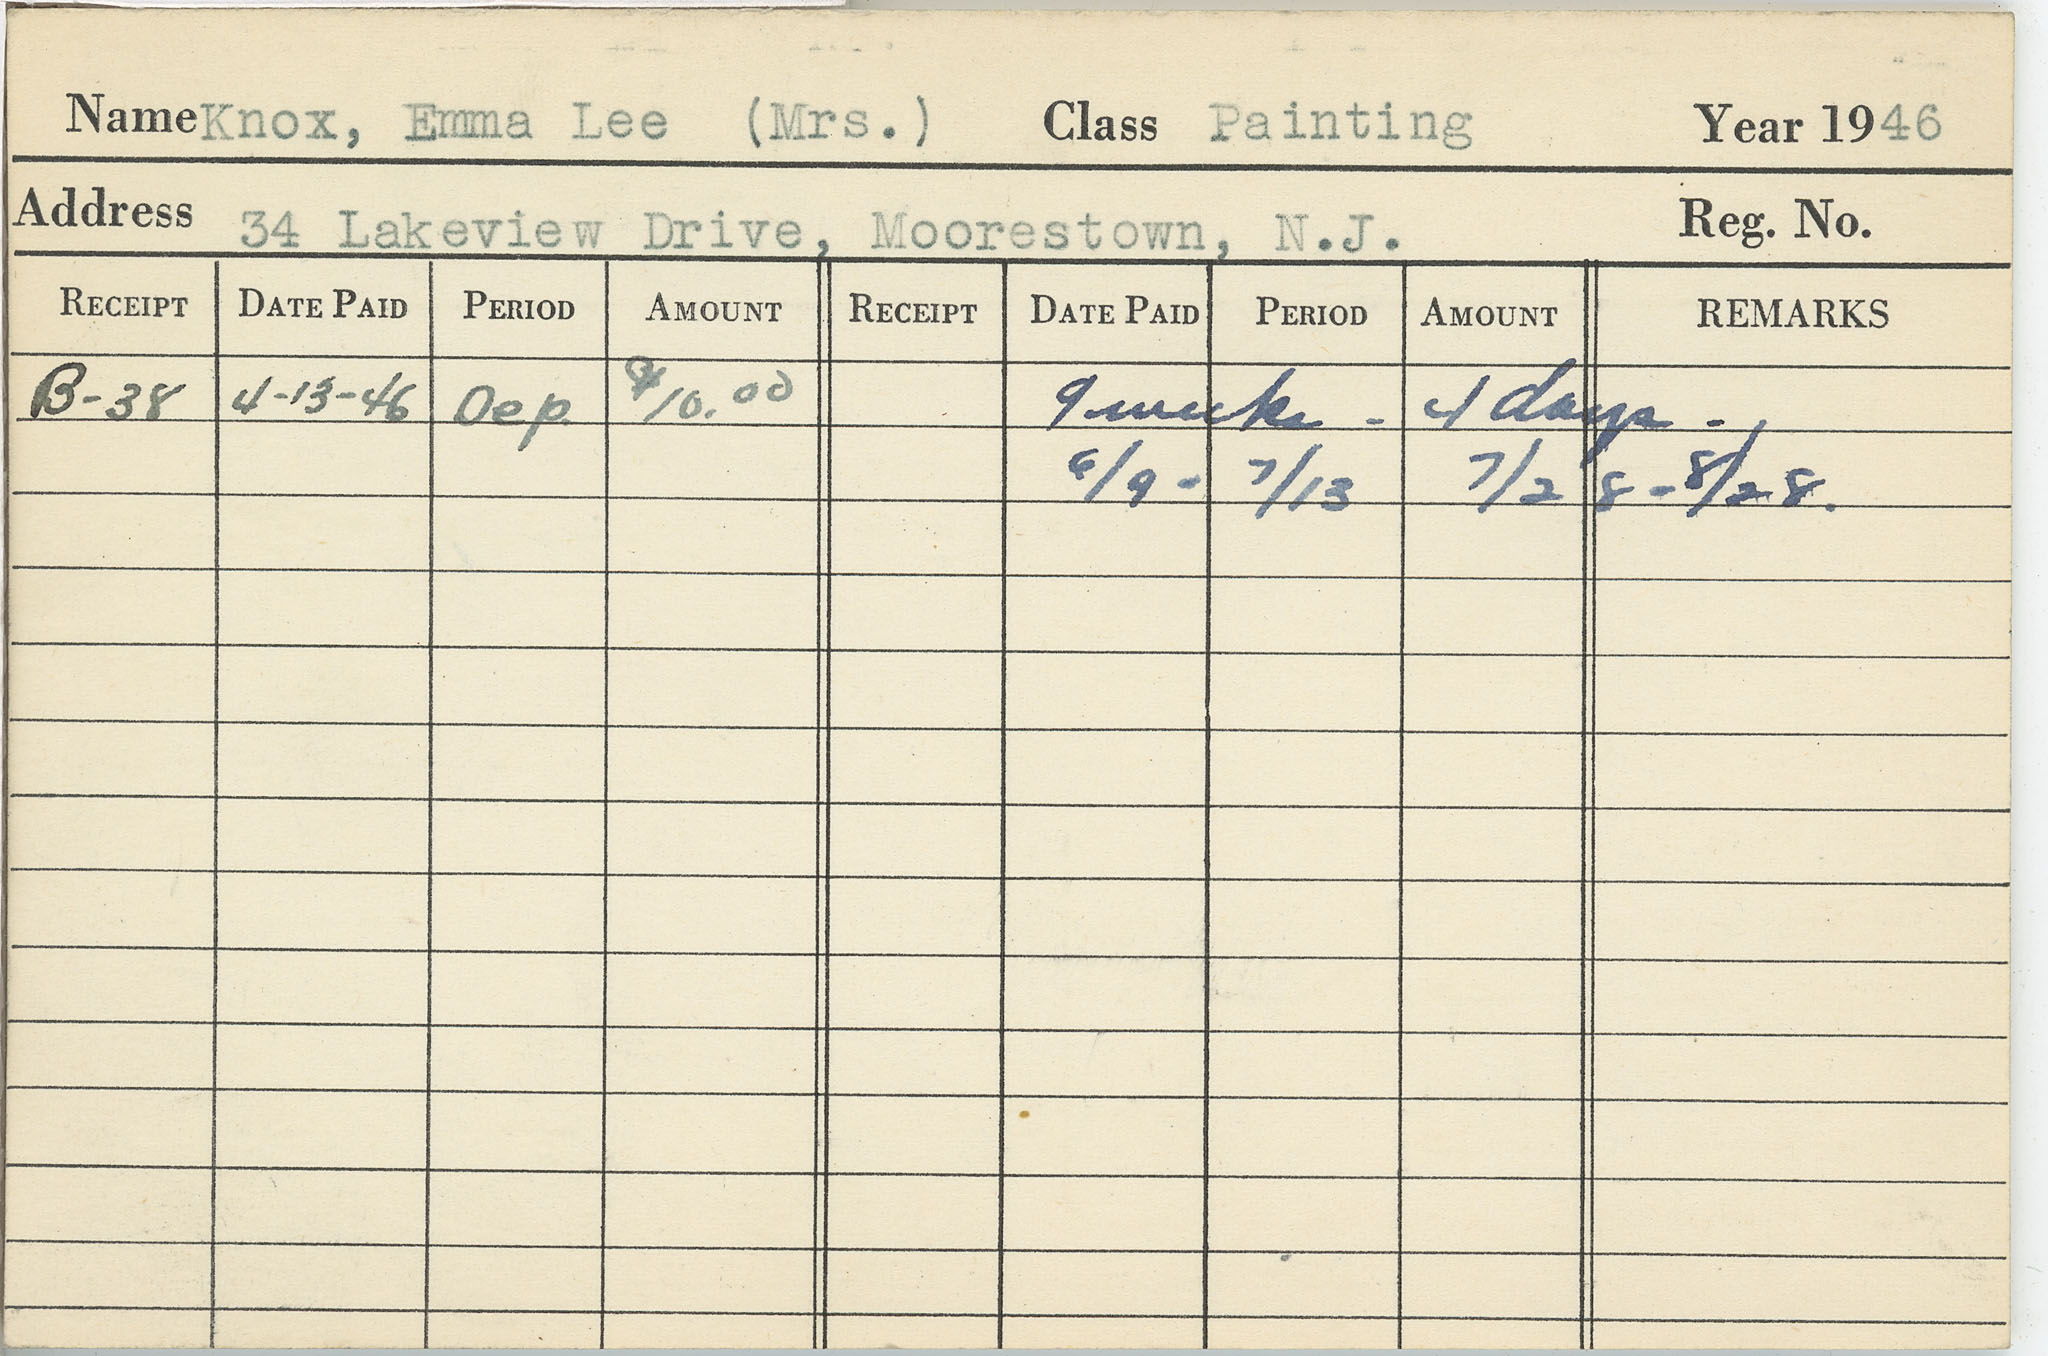 Name Knox, Emma Lee (Mrs.) Class Painting Year 1946
Address 34 Lakeview Drive, Moorestown, N.J. Reg. No.
RECEIPT DATE PAID PERIOD AMOUNT RECEIPT DATE PAID PERIOD AMOUNT REMARKS
B-38 4-13-46 Dep. $10.00 9 weeks - 4 days -
6/9 - 7/13 7/28 - 8/28.